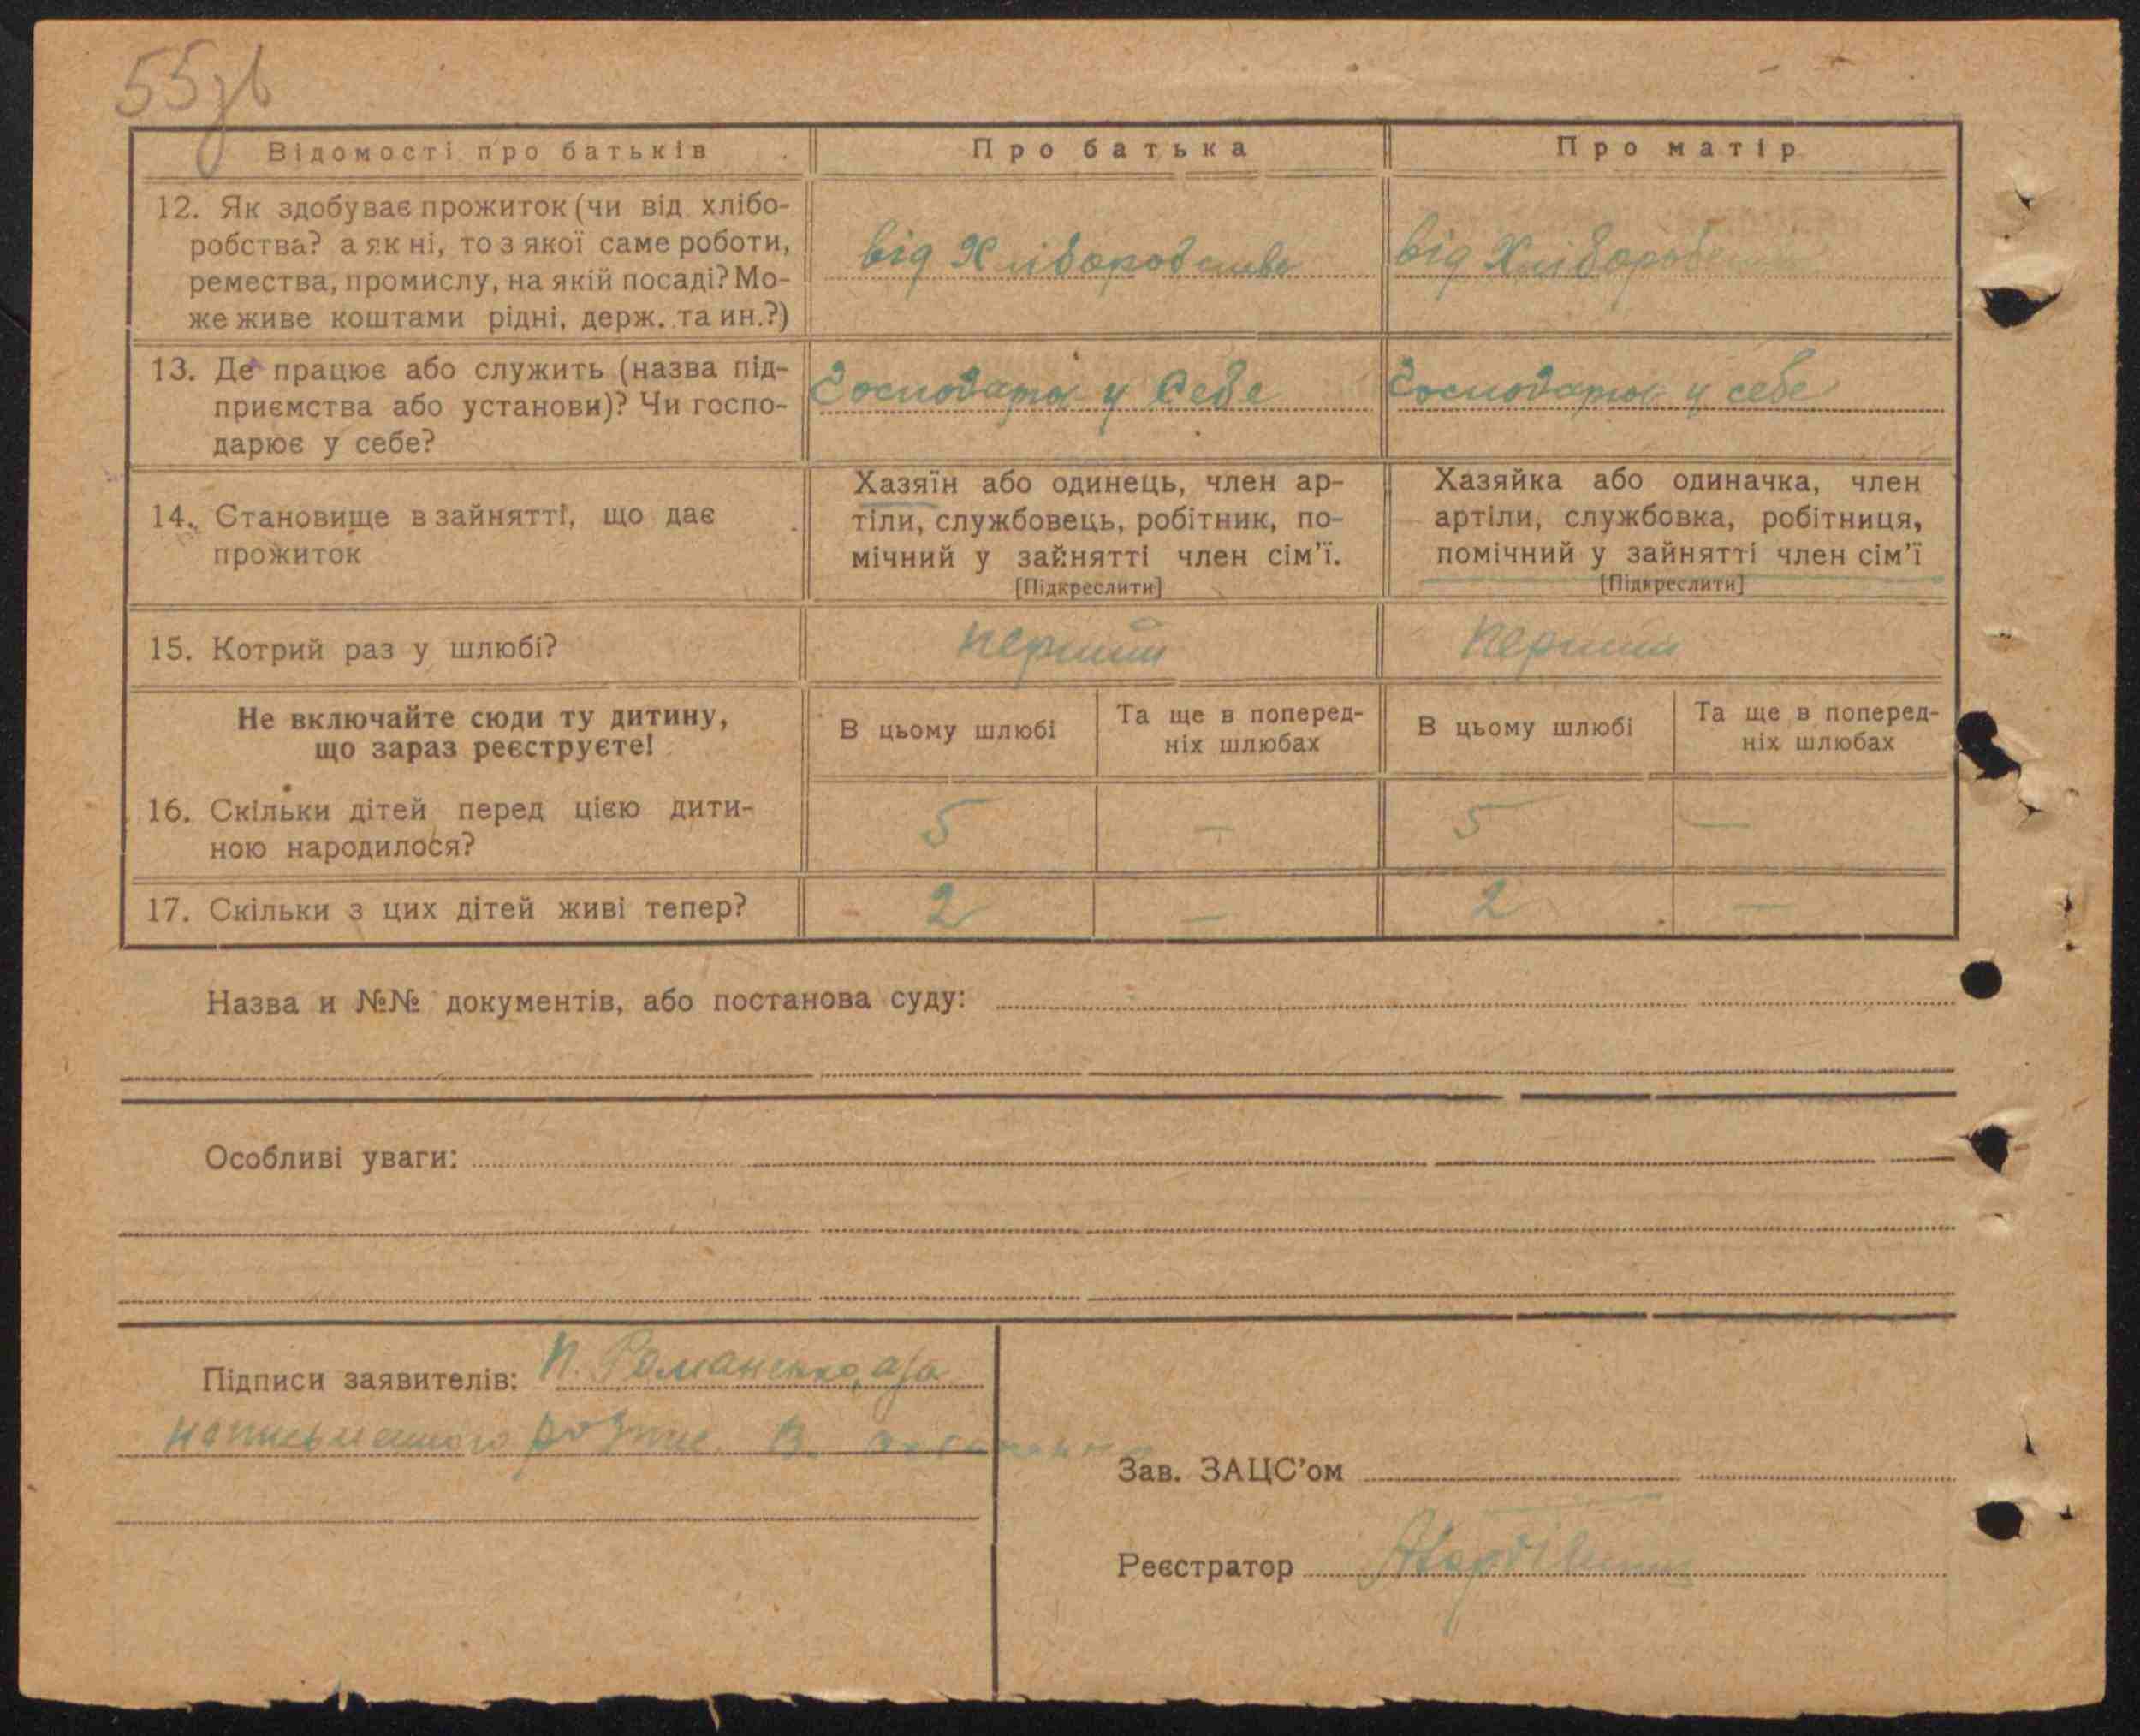 55зв
Відомості про батьків
Про батька
Про матір
12. Як здобуває прожиток (чи від хлібо-
робства? а як ні, то з якої саме роботи,
ремества, промислу, на якій посаді? Мо-
же живе коштами рідні, держ. та ин.?)
від Хліборобства
від Хліборобства
13. Де працює або служить (назва під-
приємства або установи)? Чи госпо-
дарює у себе?
Господарює у себе
Господарює у себе
14. Становище в зайнятті, що дає
прожиток
Хазяїн або одинець, член ар-
тіли, службовець, робітник, по-
мічний у зайнятті член сім'ї.
[Підкреслити]
Хазяйка або одиначка, член
артіли, службовка, робітниця,
помічний у зайнятті член сім'ї
[Підкреслити]
15. Котрий раз у шлюбі?
перший
перший
Не включайте сюди ту дитину,
що зараз реєструєте!
В цьому шлюбі
Та ще в поперед-
ніх шлюбах
В цьому шлюбі
Та ще в поперед-
ніх шлюбах
16. Скільки дітей перед цією дити-
ною народилося?
5 — 5 —
17. Скільки з цих дітей живі тепер?
2 — 2 —
Назва и №№ документів, або постанова суду:
Особливі уваги:
Підписи заявителів: П. Романенко, а за
Зав. ЗАЦС'ом
Реєстратор